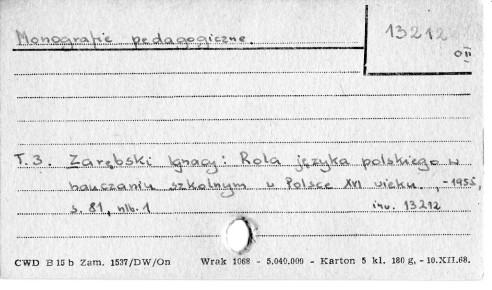 Monografie pedagogiczne.
13212
OII
T.3. Zarębski Ignacy: Rola języka polskiego w
nauczaniu szkolnym w Polsce XVI wieku., -1955,
s. 81, nlb. 1
inv. 13212
CWD B 15 b Zam. 1537/DW/On Wrak 1068 - 5,040.000 - Karton 5 kl. 180 g. - 10.XII.68.